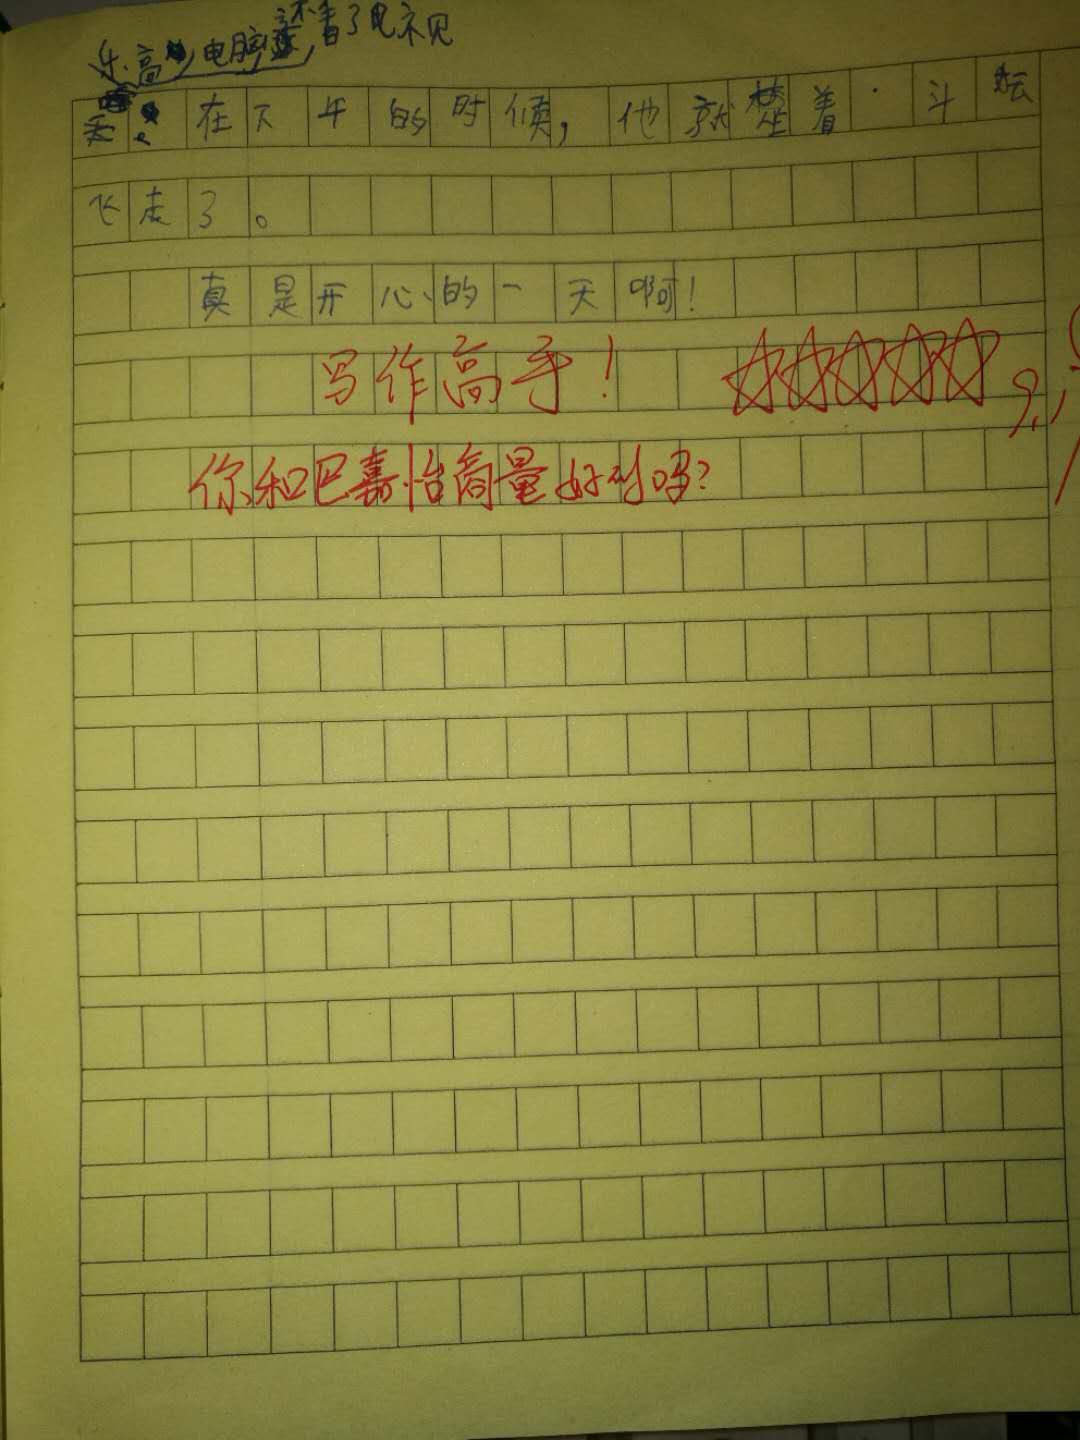 乐高电脑还看了电视
在下午的时候，他就楚着·斗坛
飞走了。
真是开心的一天啊！
写作高手！
你和巴嘉怡商量好的吗？